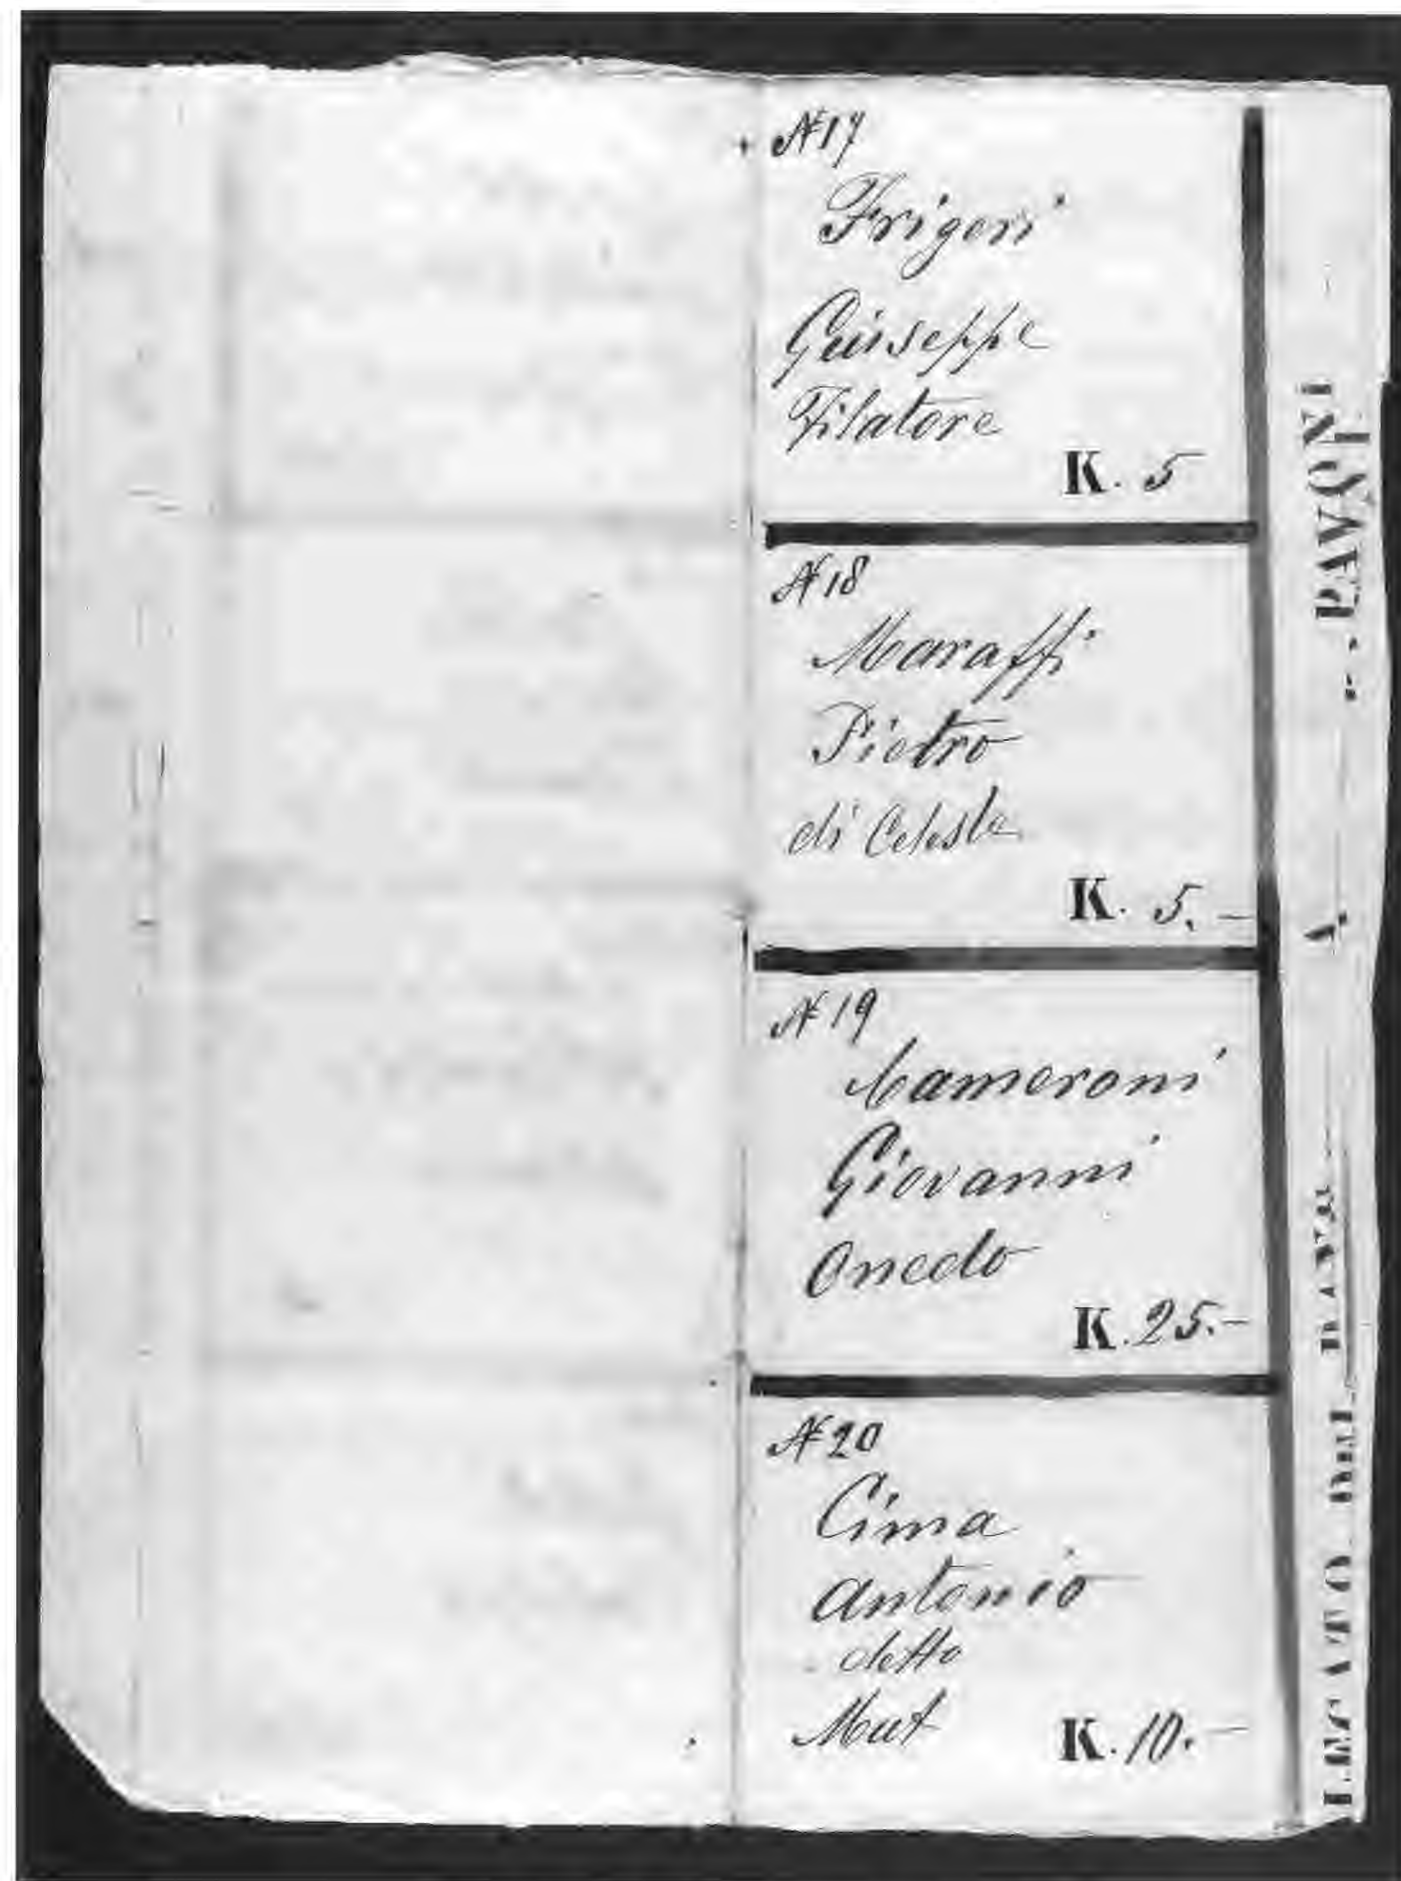 N 17
Frigeri
Giuseppe
Filatore
K. 5
N 18
Maraffi
Pietro
di Celeste
K. 5.–
N 19
Cameroni
Giovanni
Onedo
K. 25.–
N 20
Cima
Antonio
detto
Mut
K. 10.–
LEGATO DEL PAVONI